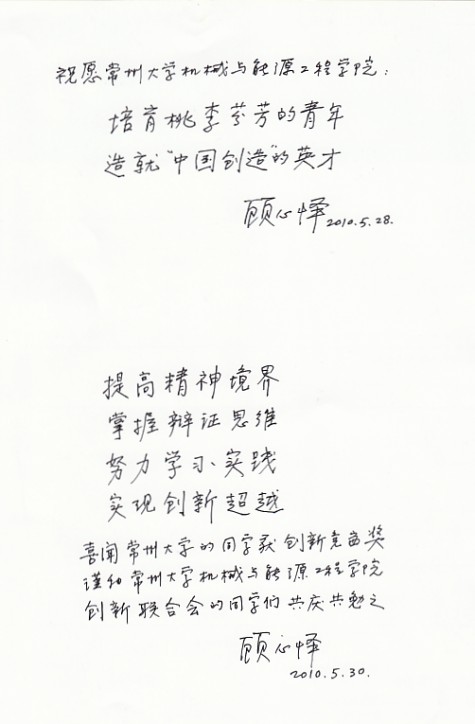 祝愿常州大学机械与能源工程学院:
培育桃李芬芳的青年
造就"中国创造"的英才
顾心怿 2010.5.28.
提高精神境界
掌握辩证思维
努力学习实践
实现创新超越
喜闻常州大学的同学获创新竞赛奖
谨和常州大学机械与能源工程学院
创新联合会的同学们共庆共勉之
顾心怿
2010.5.30.